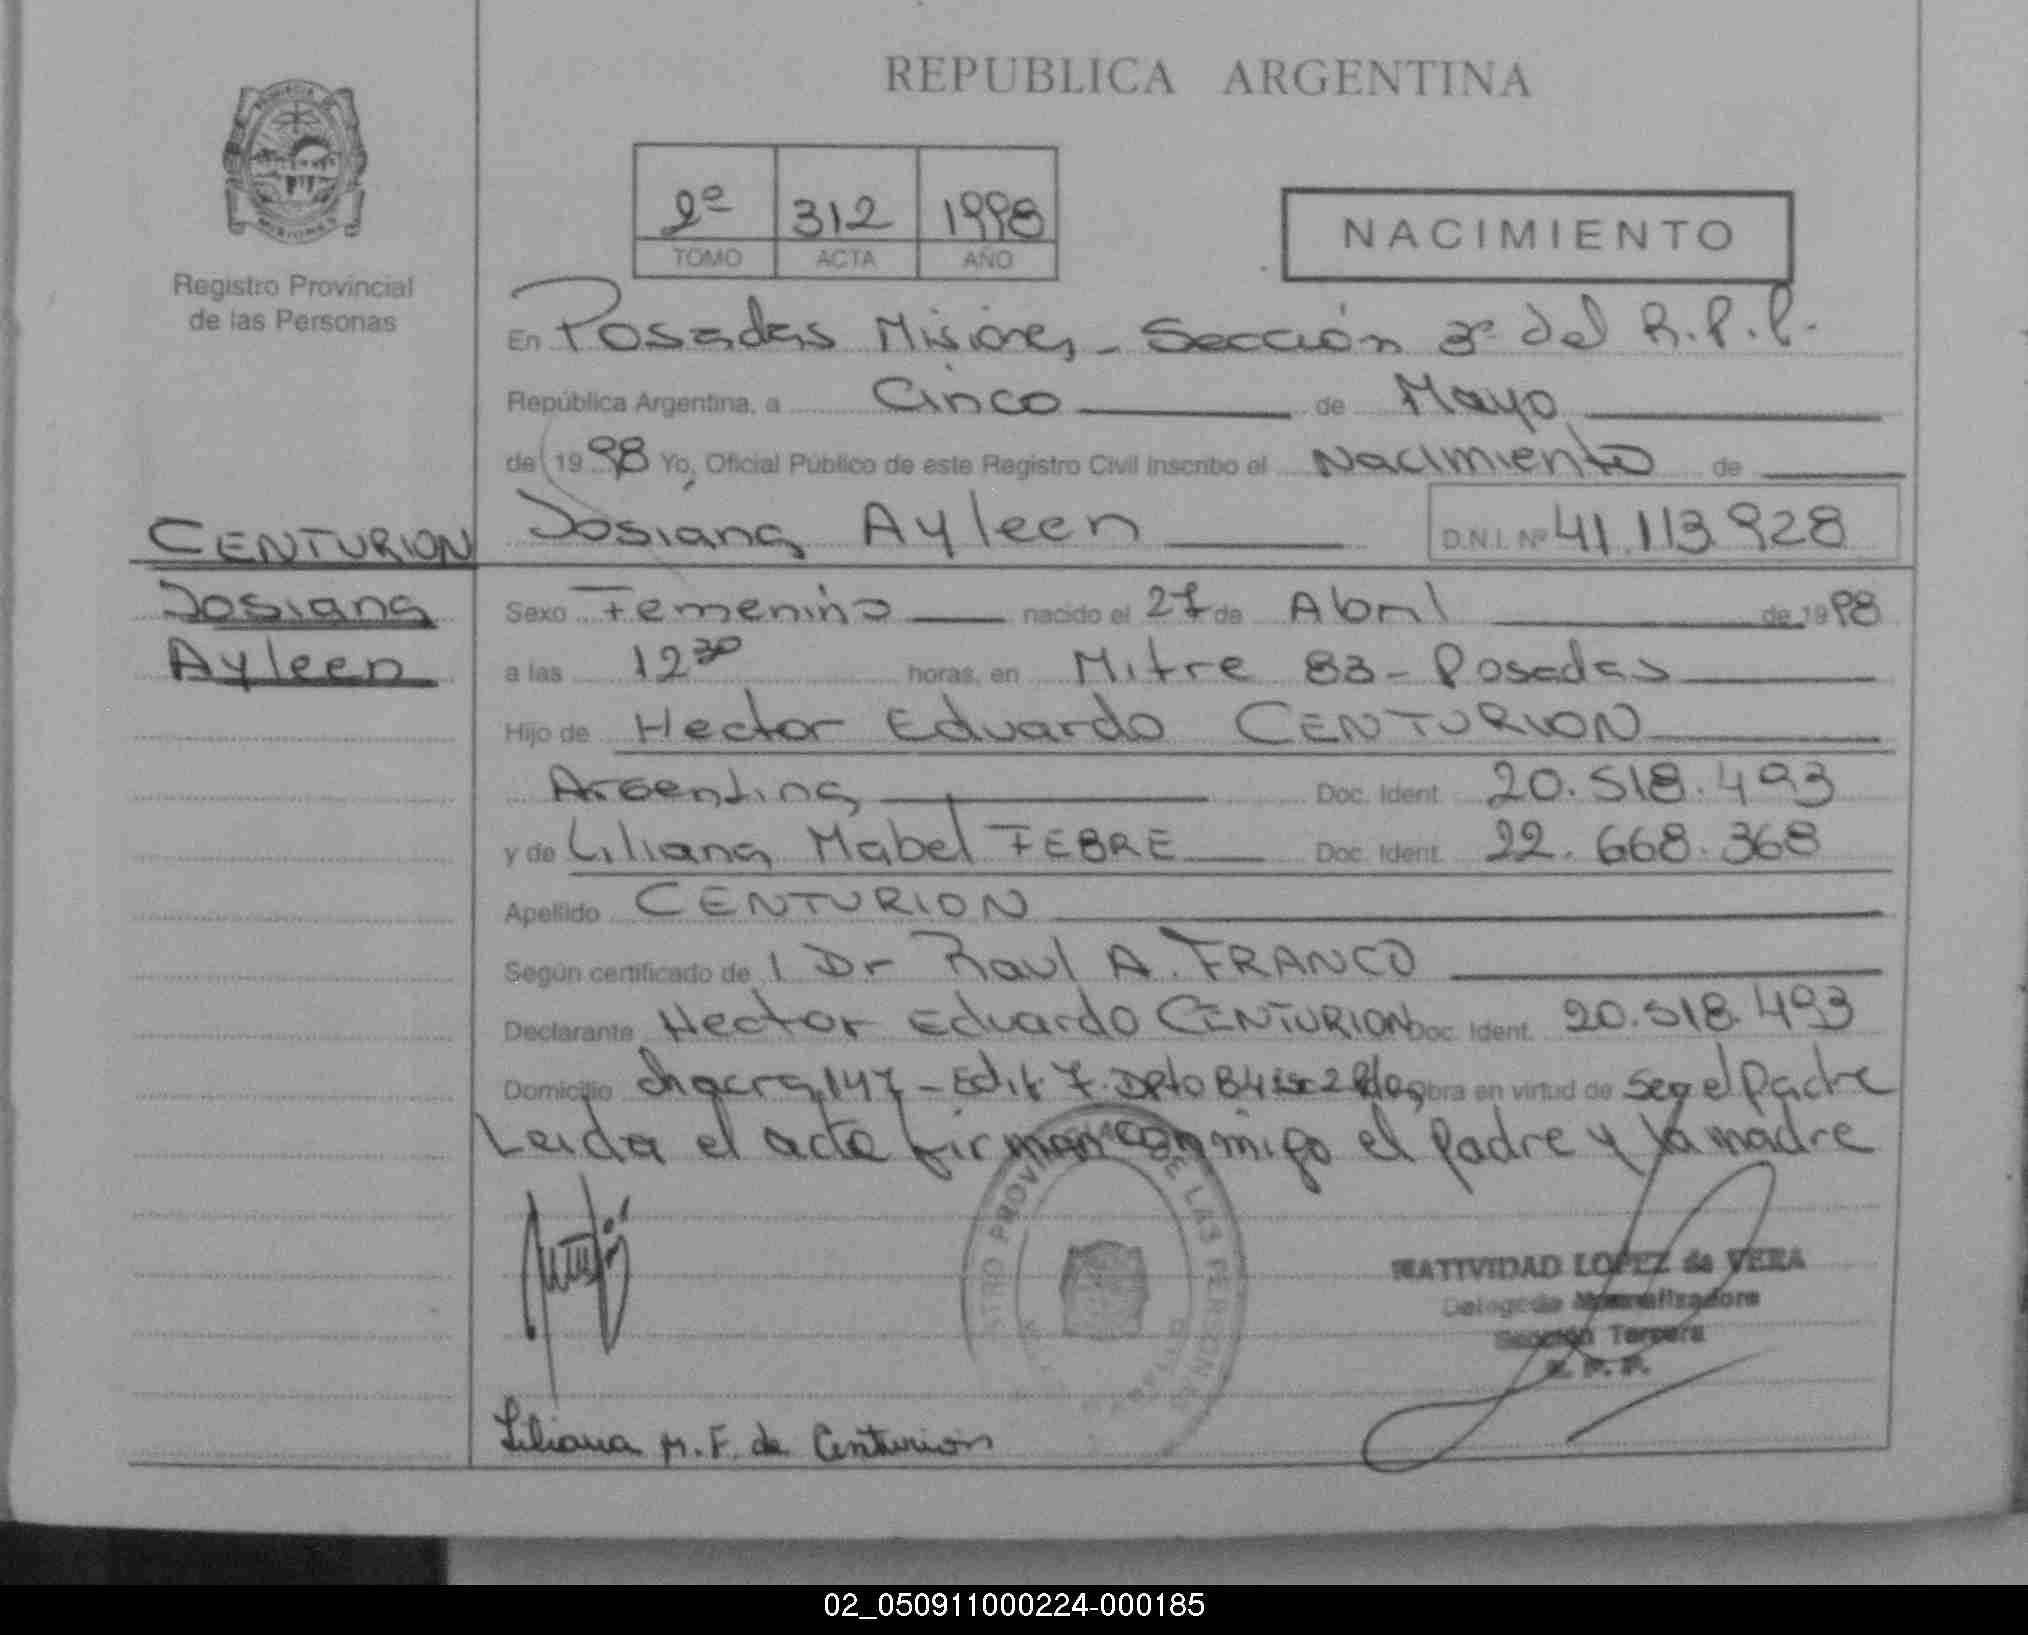 REPUBLICA ARGENTINA
PROVINCIA DE
MISIONES
Registro Provincial
de las Personas
2º 312 1998
TOMO ACTA AÑO
NACIMIENTO
En Posadas Misiones - Sección 3º del R.P.P.
República Argentina, a Cinco de Mayo
de 1998 Yo, Oficial Público de este Registro Civil inscribo el Nacimiento de
CENTURION Josiana Ayleen D.N.I. Nº 41.113.928
Josiana Sexo Femenino nacido el 27 de Abril de 1998
Ayleen a las 12 30 horas, en Mitre 83 - Posadas
Hijo de Hector Eduardo CENTURION
Argentina Doc. Ident. 20.518.493
y de Liliana Mabel FEBRE Doc. Ident. 22.668.368
Apellido CENTURION
Según certificado de l Dr Raul A. FRANCO
Declarante Hector Eduardo CENTURION Doc. Ident. 20.518.493
Domicilio Chacra 147 - Edif 7. Dpto B4 2 Obra en virtud de Ser el Padre
Leida el acta firman conmigo el padre y la madre
REGISTRO PROVINCIAL DE LAS PERSONAS
NATIVIDAD LOPEZ de VERA
Delegada Normalizadora
Sección Tercera
R. P. P.
Liliana M. F. de Centurion
02_050911000224-000185